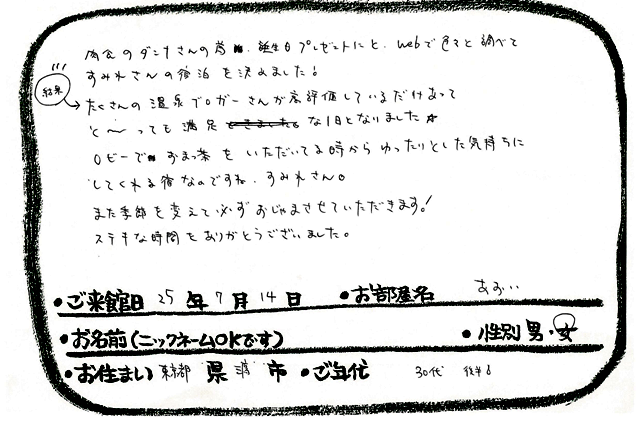 ダンナさんの 誕生日プレゼントにと、webで色々と調べて
すみれさんの宿泊を決めました!
結果
たくさんの温泉ブロガーさんが高評価しているだけあって
と〜っても満足 な1日となりました☆
ロビーで お茶をいただいてる時からゆったりとした気持ちに
してくれる宿なのですね、すみれさん。
また季節を変えて必ずおじゃまさせていただきます!
ステキな時間をありがとうございました。
•ご来館日 25 年 7 月 14 日 •お部屋名 あおい
•お名前(ニックネームOKです) •性別 男・女
•お住まい 東京都 県 市 •ご年代 30代 後半